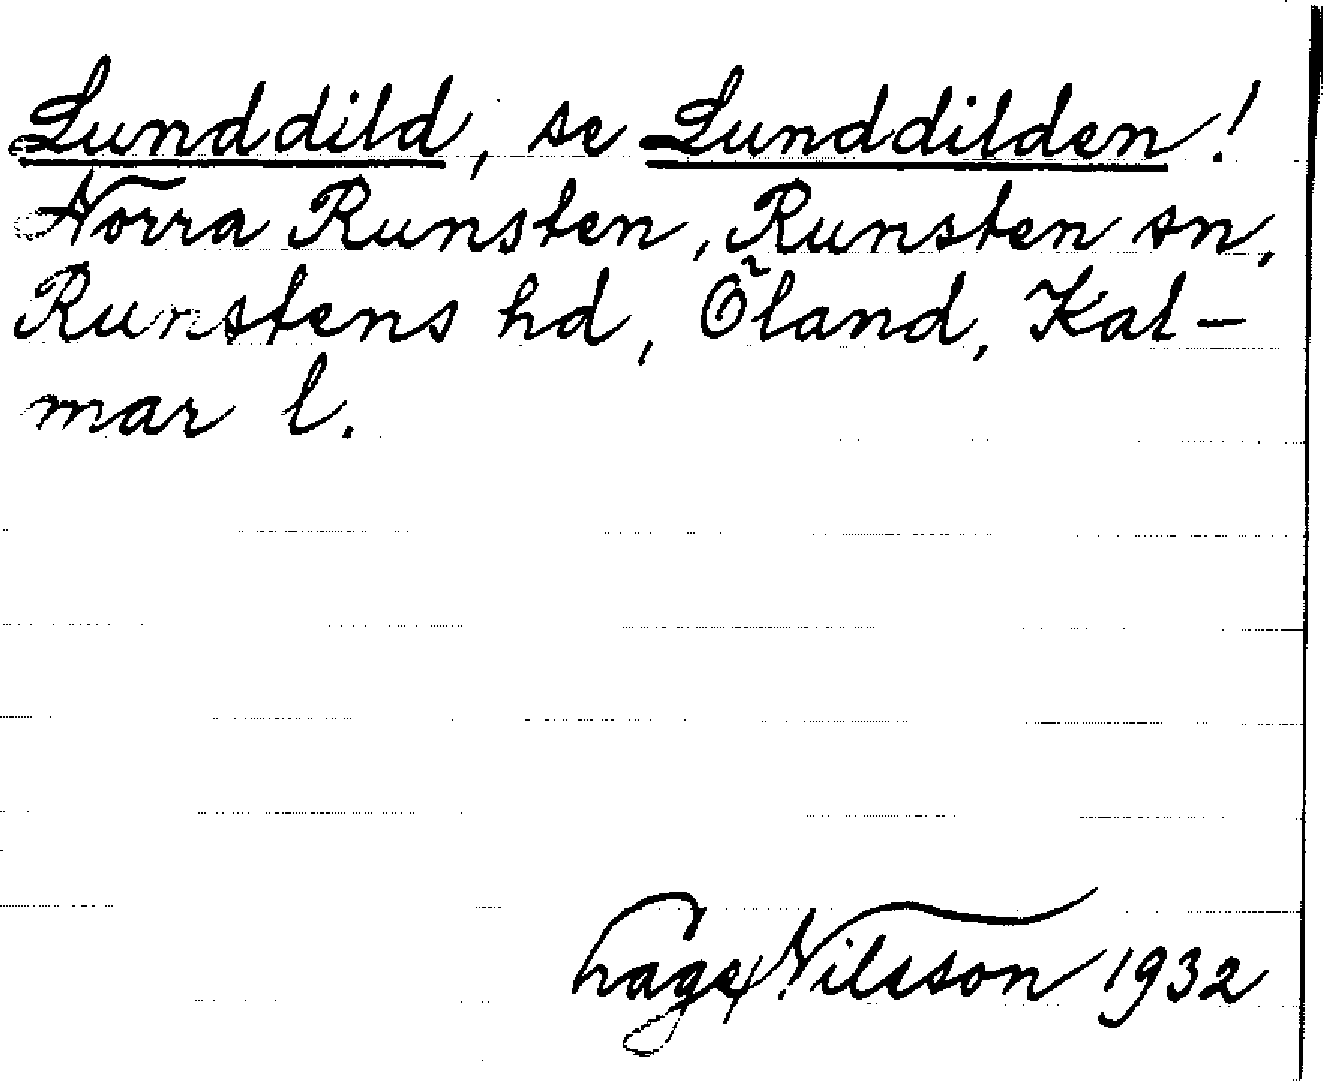 Lunddild, se Lunddilden!
Norra Runsten, Runsten sn,
Runstens hd, Öland, Kal-
mar l.
Hage Nilsson 1932